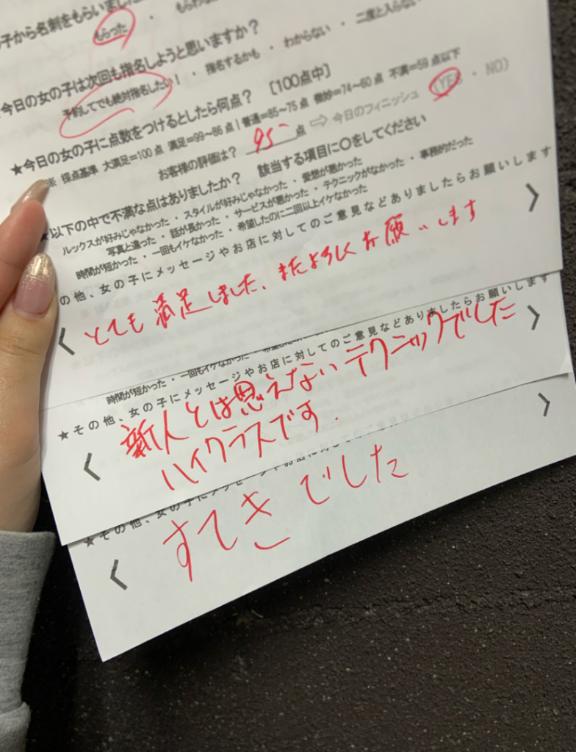 子から名刺をもらいました
もらった ・ もらわな
今日の女の子は次回も指名しようと思いますか?
予約してでも絶対指名したい! ・ 指名するかも ・ わからない ・ 二度と入らない
★今日の女の子に点数をつけるとしたら何点? [100点中]
※ 採点基準 大満足=100点 満足=99~86点 | 普通=85~75点 微妙=74~60点 不満=59点以下
お客様の評価は? 95 点 ⇨ 今日のフィニッシュ (YES ・ NO)
以下の中で不満な点はありましたか? 該当する項目に○をしてください
ルックスが好みじゃなかった ・ スタイルが好みじゃなかった ・ 愛想が悪かった
写真と違った ・ 話が長かった ・ サービスが悪かった ・ テクニックがなかった ・ 事務的だった
時間が短かった ・ 一回もイケなかった ・ 希望したのに二回以上イケなかった
の他、女の子にメッセージやお店に対してのご意見などありましたらお願いします
とても満足しました、またよろしくお願いします
時間が短かった ・ 一回もイケなかった
★その他、女の子にメッセージやお店に対してのご意見などありましたらお願いします
新人とは思えないテクニックでした
ハイクラスです.
★その他、女の子にメッセージやお店に対してのご意見
すてきでした